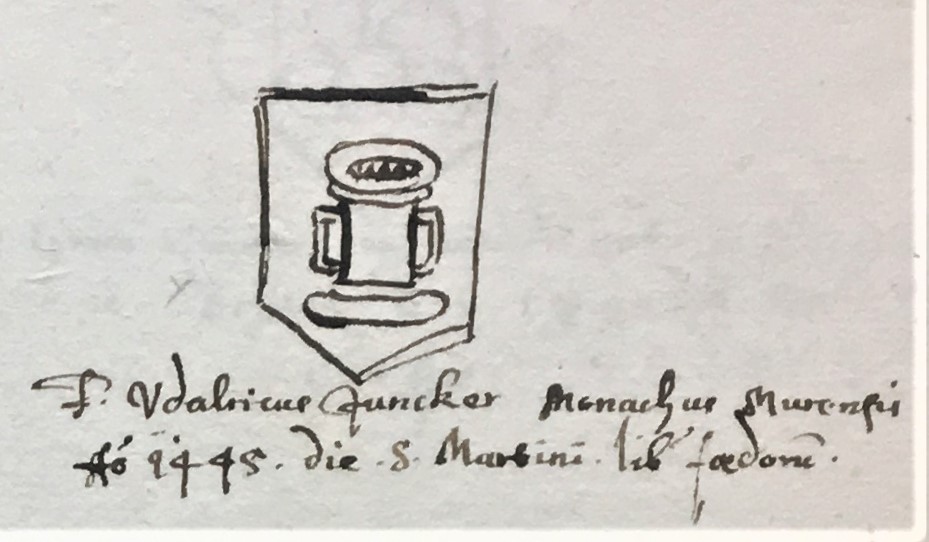 F. Vdalricus Juncker Monachus Murensis
Aº 1445. die .S. Martini. lib' fœdorū.